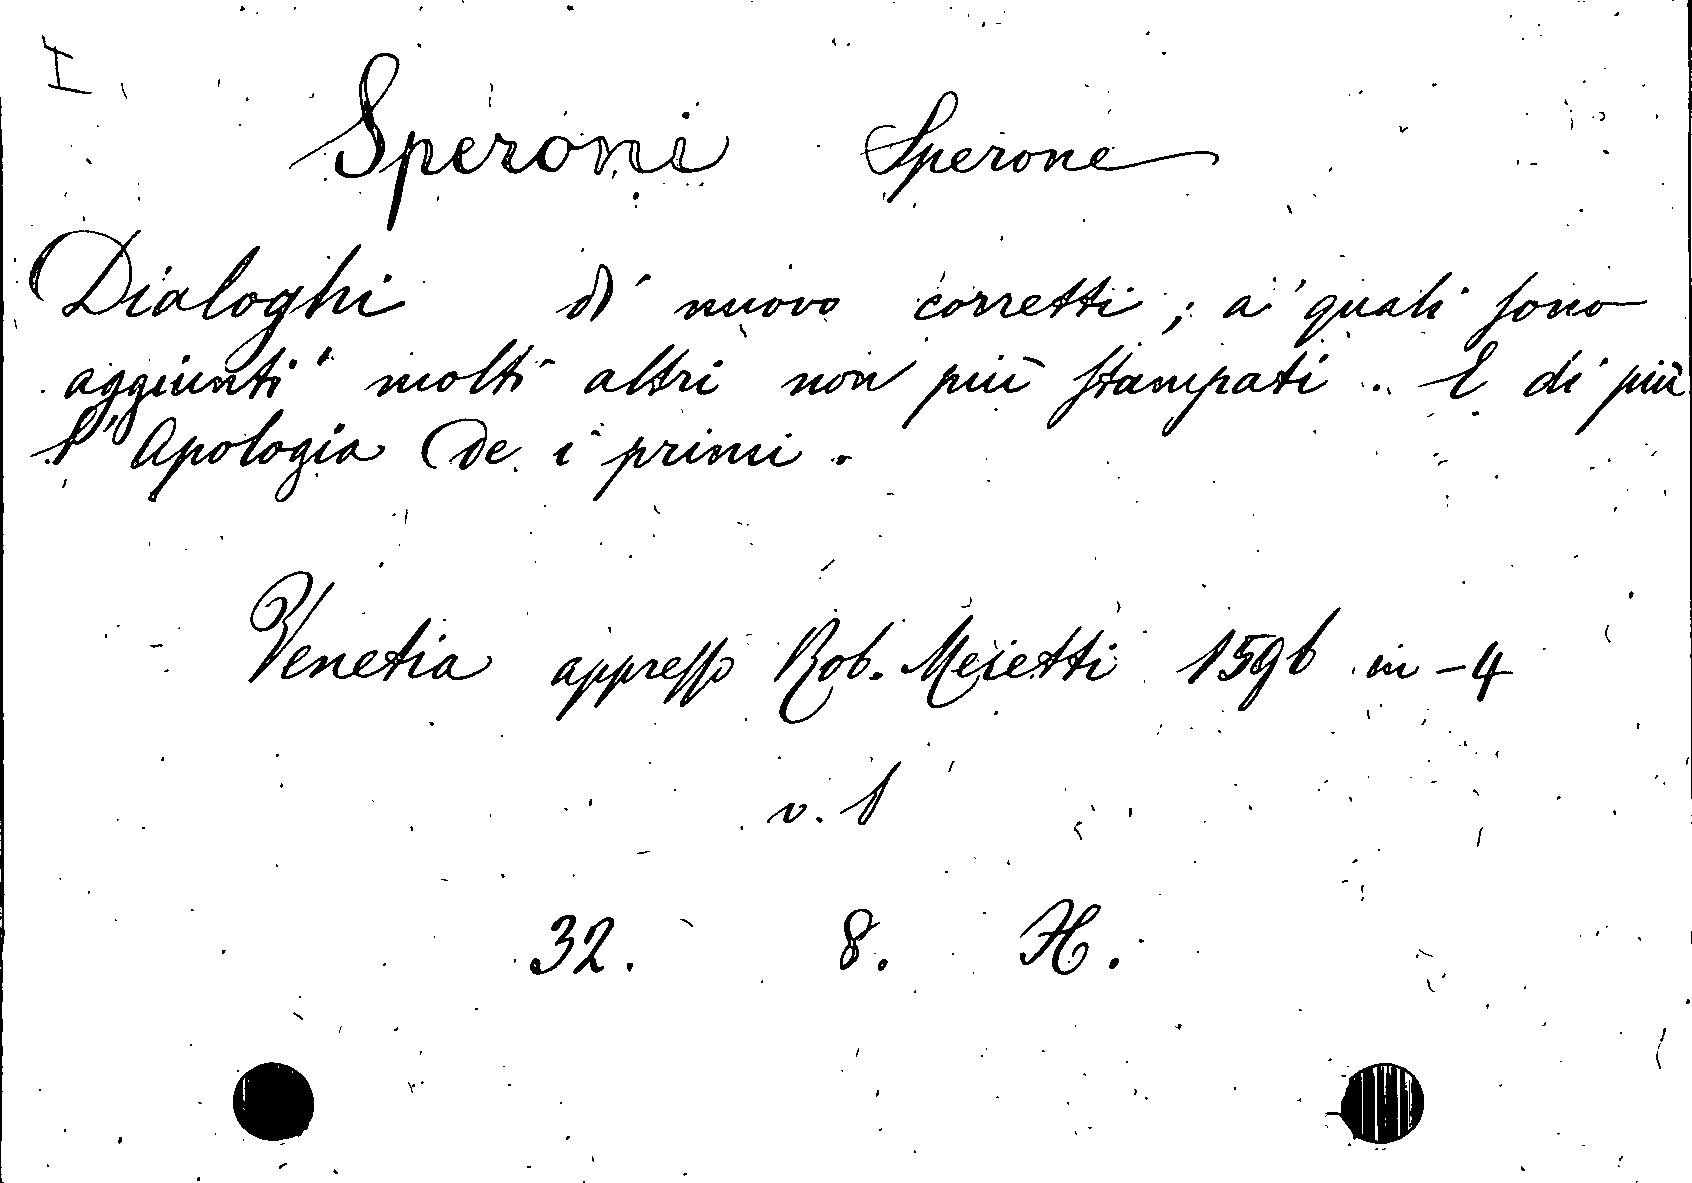 I
Speroni Sperone
Dialoghi di nuovo corretti ; a' quali sono
aggiunti molti altri non più stampati . E di più
l' Apologia de i primi .
Venetia appresso Rob. Meietti 1596 in - 4
v. 1
32. 8. H.